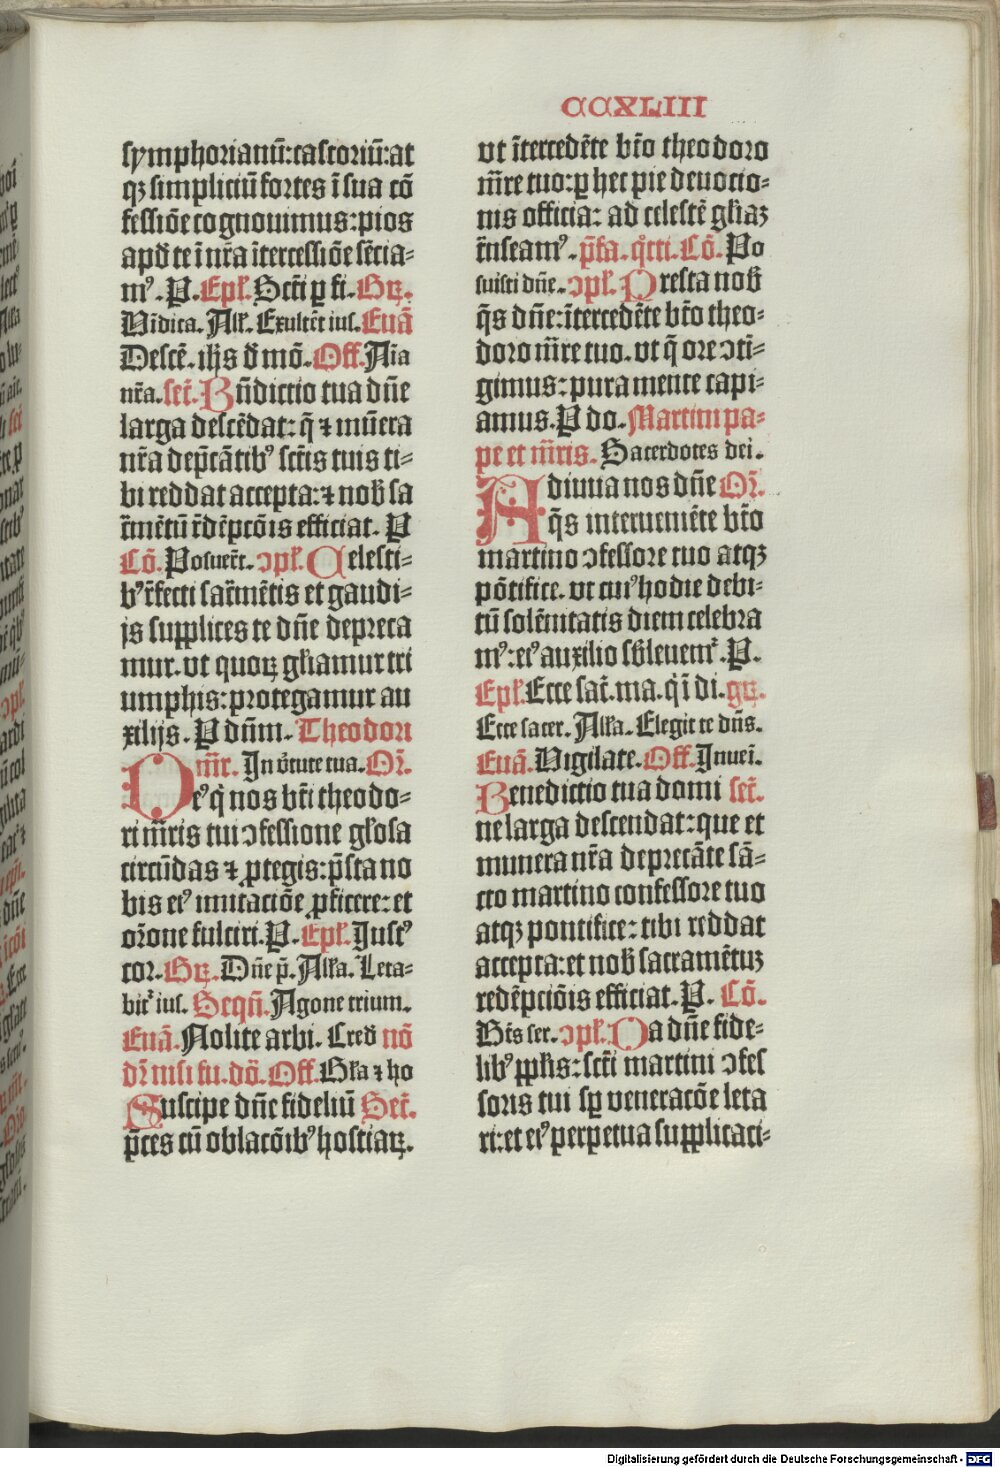 CCXLIII
symphorianū: castoriū: at
qꝫ simpliciū fortes ī sua cō
fessiōe cognouimus: pios
apd te ī nr̄a ītercessiōe sēcia⸗
mꝰ. P. Epl̄. Scti p fi. Gꝝ.
Vīdica. All̄. Exultēt ius. Euā
Descē. ih̄s d̄ mō. Off. Aīa
nr̄a. secr̄. Bn̄dictio tua dn̄e
larga descēdat: q̄ ⁊ mūera
nr̄a dep̄cātibꝰ sctīs tuis ti⸗
bi reddat accepta: ⁊ nob̄ sa
cr̄mētū r̄dēpcōis efficiat. P
Cō. Posuer̄t. ↄpl̄. Celesti⸗
bꝰ r̄fecti sacr̄mētis et gaudi⸗
js supplices te dn̄e depreca
mur. vt quoꝝ gl̄iamur tri
umphis: protegamur au
xilijs. P dn̄m. Theodori
mr̄. In v̄tute tua. Or̄.
Deꝰ q̄ nos bt̄i theodo⸗
ri mr̄is tui ↄfessione gl̄osa
circūdas ⁊ ꝓtegis: p̄sta no
bis eiꝰ imitaciōe ꝓficere: et
or̄one fulciri. P. Epl̄. Iustꝰ
cor. Gꝝ. Dn̄e p̄. All̄a. Leta⸗
bit̄ ius. Seqn̄. Agone trium.
Euā. Nolite arbi. Cred̄ nō
dr̄ nisi fu. dō. Off. Gl̄a ⁊ ho
Suscipe dn̄e fideliū Secr̄.
p̄ces cū oblacōibꝰ hostiaꝝ.
vt ītercedēte bt̄o theodoro
mr̄e tuo: ꝑ hec pie deuocio⸗
nis officia: ad celestē gl̄iaꝫ
tn̄seamꝰ. p̄fa. qͦtti. Cō. Po
suisti dn̄e. ↄpl̄. Presta nob̄
q̄s dn̄e: ītercedēte bt̄o theo⸗
doro mr̄e tuo. vt q̄ ore ↄtī⸗
gimus: pura mente capi⸗
amus. P do. Martini pa⸗
pe et mr̄ris. Sacerdotes dei.
Adiuua nos dn̄e Or̄.
q̄s interueniēte bt̄o
martino ↄfessore tuo atqꝫ
pōtifice. vt cuiꝰ hodie debi⸗
tū solēnitatis diem celebra
mꝰ: eiꝰ auxilio sb̄leuemr̄. P.
Epl̄. Ecce sac̄. ma. qī di. gꝝ.
Ecce sacer. All̄a. Elegit te dn̄s.
Euā. Vigilate. Off. Inuei.
Benedictio tua domi secr̄.
ne larga descendat: que et
munera nr̄a deprecāte sā⸗
cto martino confessore tuo
atqꝫ pontifice: tibi reddat
accepta: et nob̄ sacramētuꝫ
redēpciōis efficiat. P. Cō.
Bt̄s ser. ↄpl̄. Da dn̄e fide⸗
libꝰ ppl̄is: sctī martini ↄfes
soris tui sꝑ veneracōe leta
ri: et eiꝰ perpetua supplicaci⸗
Digitalisierung gefördert durch die Deutsche Forschungsgemeinschaft - DFG